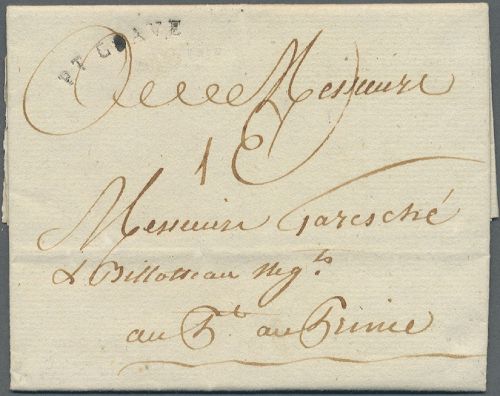 PT GOAVE
Messieurs
10
Messieurs Garesché
& Billotteau Negts
au Pt au Prince